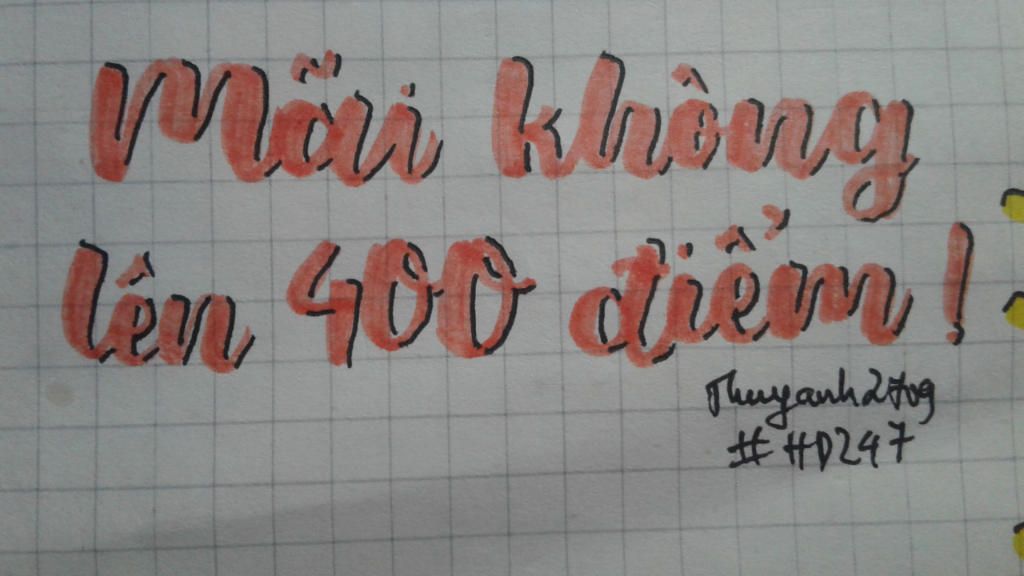 Mãi không
lên 400 điểm!
Thuyanh2709
#HD247